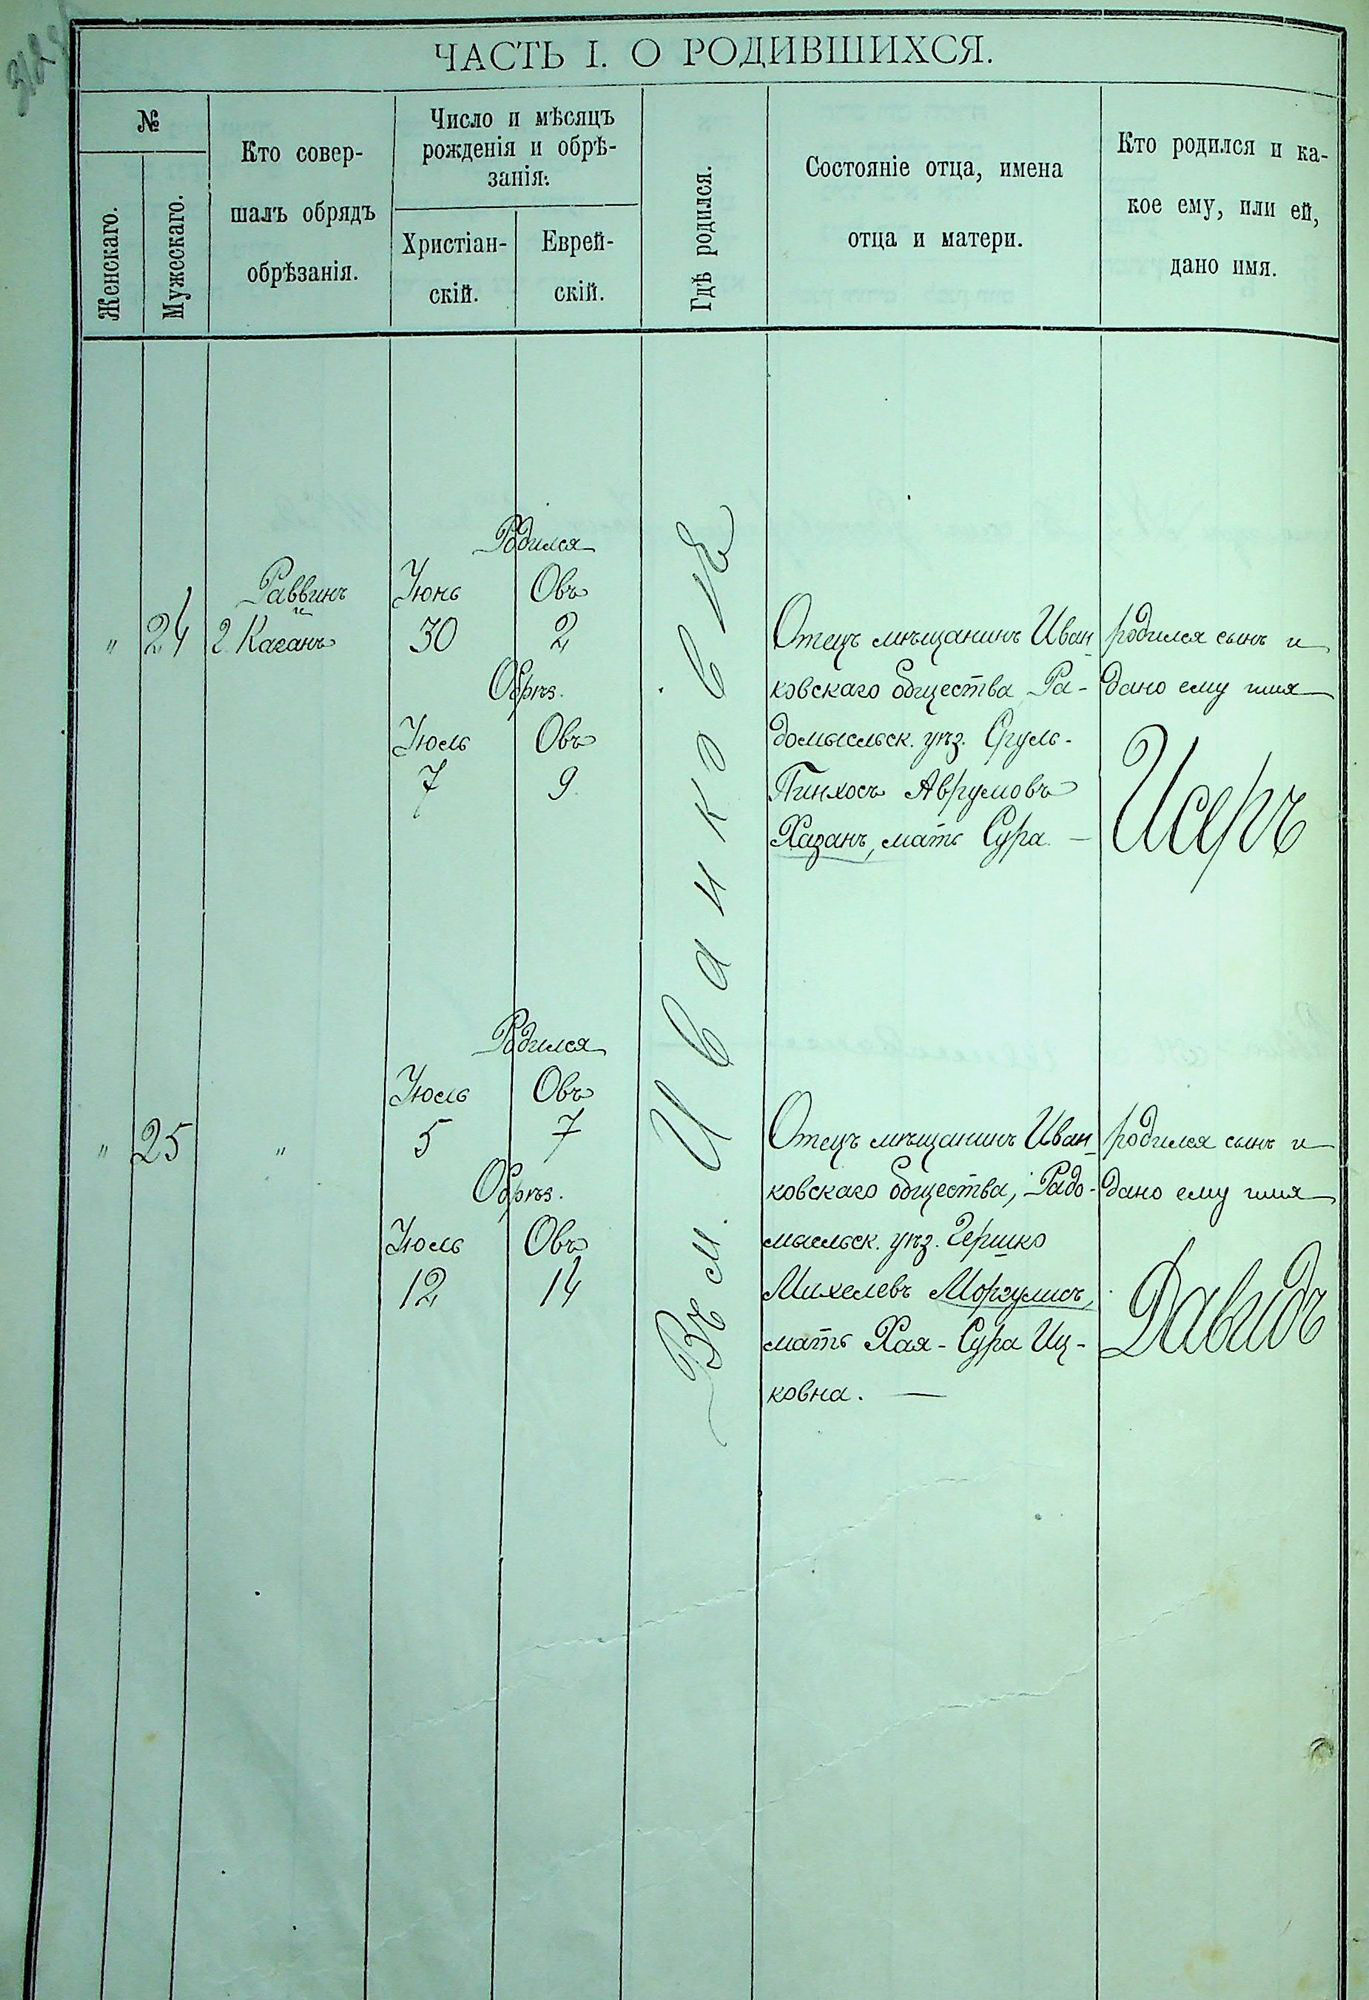 ЧАСТЬ I. О РОДИВШИХСЯ.
№
Женскаго.
Мужескаго.
Кто совер-
шалъ обрядъ
обрѣзанія.
Число и мѣсяцъ
рожденія и обрѣ-
занія:
Христіан-
скій.
Еврей-
скій.
Гдѣ родился.
Состояніе отца, имена
отца и матери.
Кто родился и ка-
кое ему, или ей,
дано имя.
"
24
Раввинъ
и
2. Каганъ
Родился
Іюнь Овъ
30 2
Обрѣз.
Іюль Овъ
7 9
Въ м. Иванковѣ
Отецъ мѣщанинъ Иван
ковскаго общества, Ра-
домысльск. уѣз. Сруль-
Пинхосъ Аврумовъ
Хазанъ, мать Сура. —
родился сынъ и
дано ему имя
Исеръ
"
25
"
Родился
Іюль Овъ
5 7
Обрѣз.
Іюль Овъ
12 14
Отецъ мѣщанинъ Иван
ковскаго общества, Радо-
мысльск. уѣз. Гершко
Михелевъ Моргулисъ,
мать Хая-Сура Иц-
ковна. —
родился сынъ и
дано ему имя
Давидъ